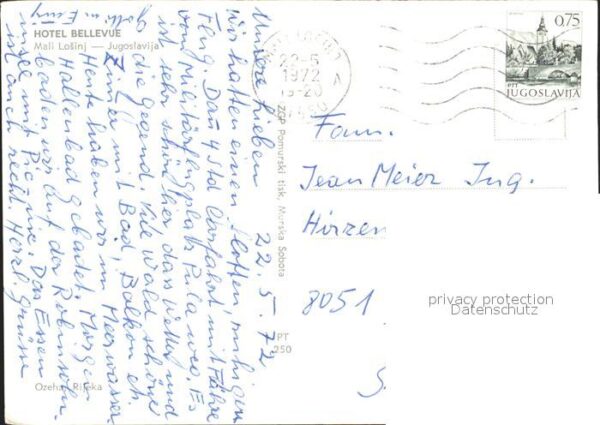 HOTEL BELLEVUE
Mali Lošinj — Jugoslavija
22.5.72
Unsere Lieben
Wir hatten einen flotten, ruhigen
Flug. Dann 4 Std Carfahrt mit Fähre
vom Militärflugplatz Pula weg. Es
ist sehr schön hier das Wetter und
die Gegend. Viele Wald schöne
Zimmer mit Bad, Balkon etc.
Heute haben wir im Meerwasser
Hallenbad gebadet. Morgen
baden wir auf der Robinson-
insel mit Picknic. Das Essen
ist auch recht. Herzl. Grüsse
ZGP Pomurski tisk, Murska Sobota
PT
250
22-5
1972
A
0,75
PTT
JUGOSLAVIJA
Fam.
Jean Meier Ing.
Hirzen
8051
privacy protection
Datenschutz
Ozehaj Rijeka